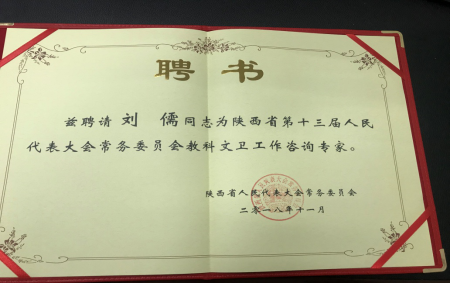 聘书
兹聘请刘儒同志为陕西省第十三届人民
代表大会常务委员会教科文卫工作咨询专家。
陕西省人民代表大会常务委员会
二〇一八年十一月